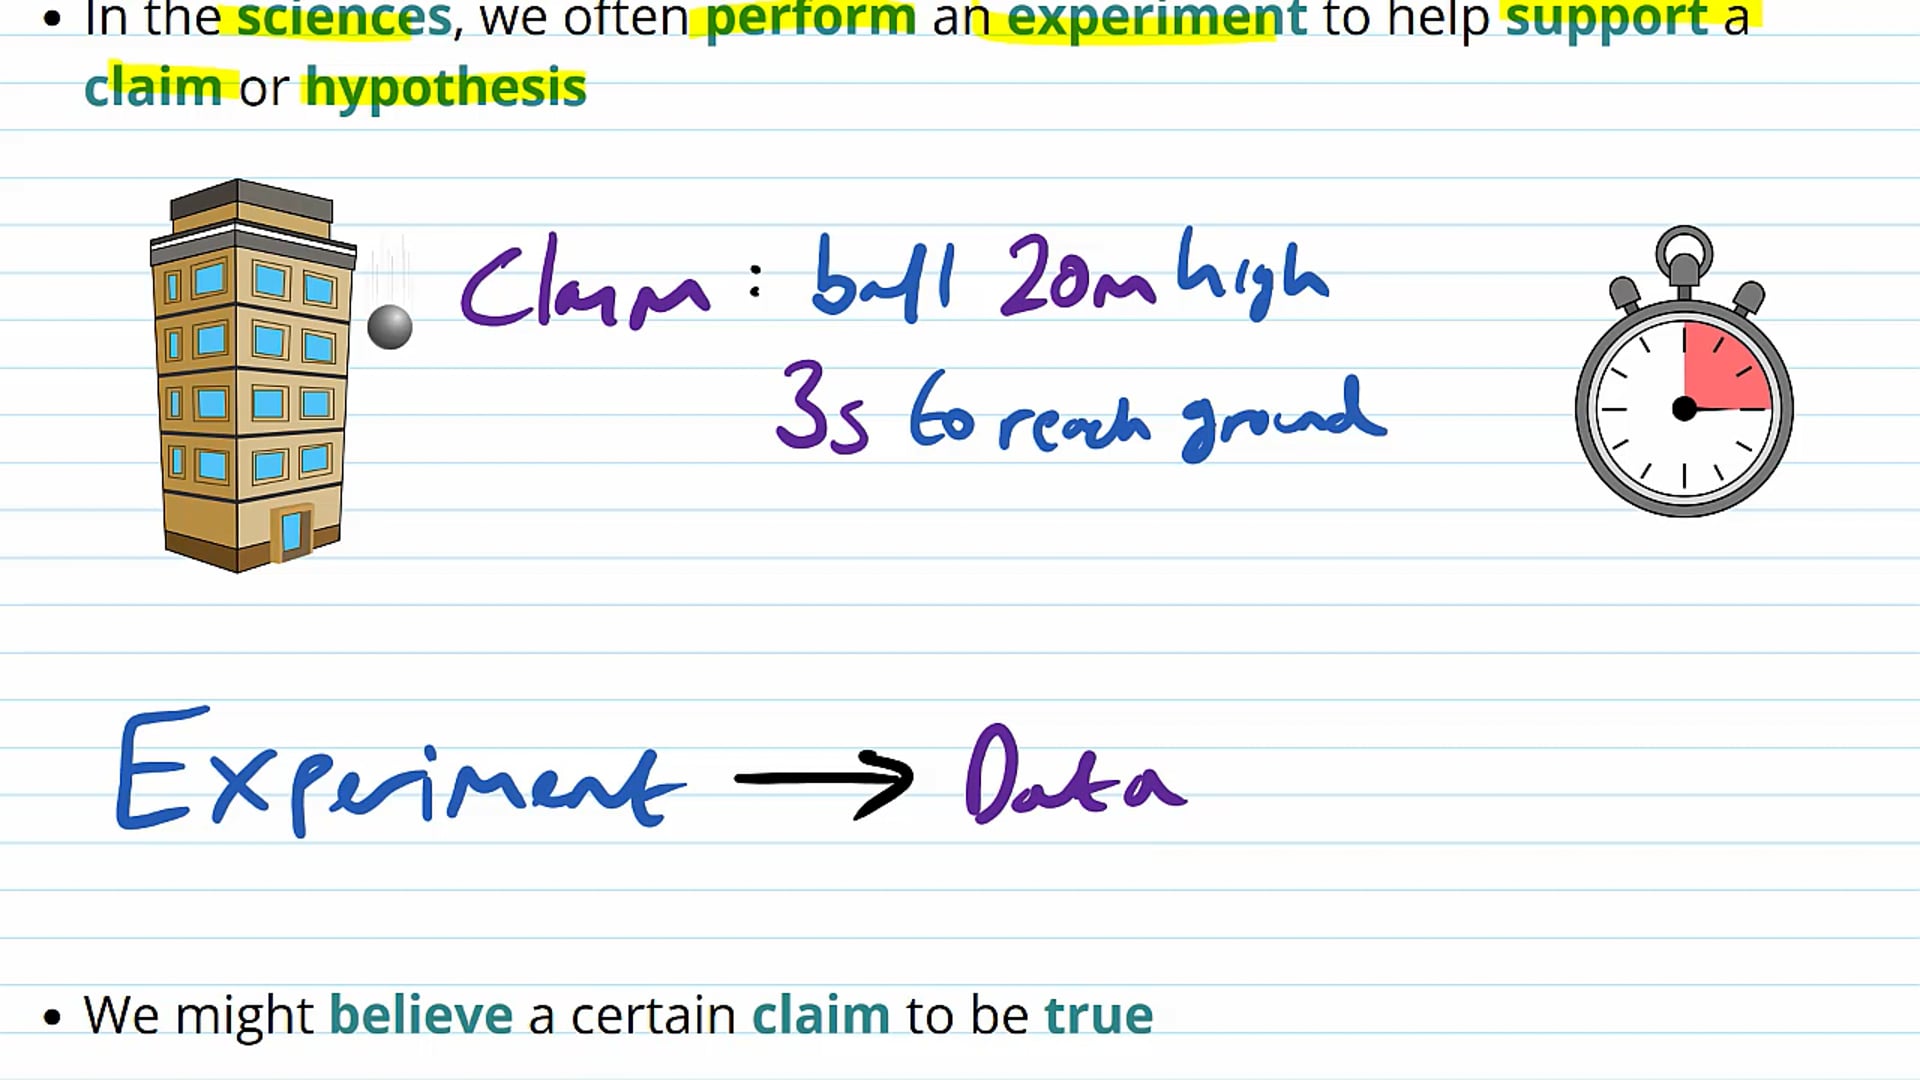 • In the sciences, we often perform an experiment to help support a
claim or hypothesis
Claim : ball 20m high
3s to reach ground
Experiment → Data
• We might believe a certain claim to be true